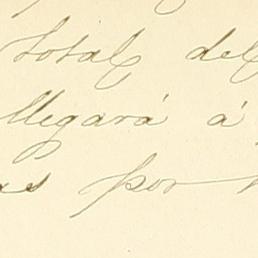 total del
llegará á
as por